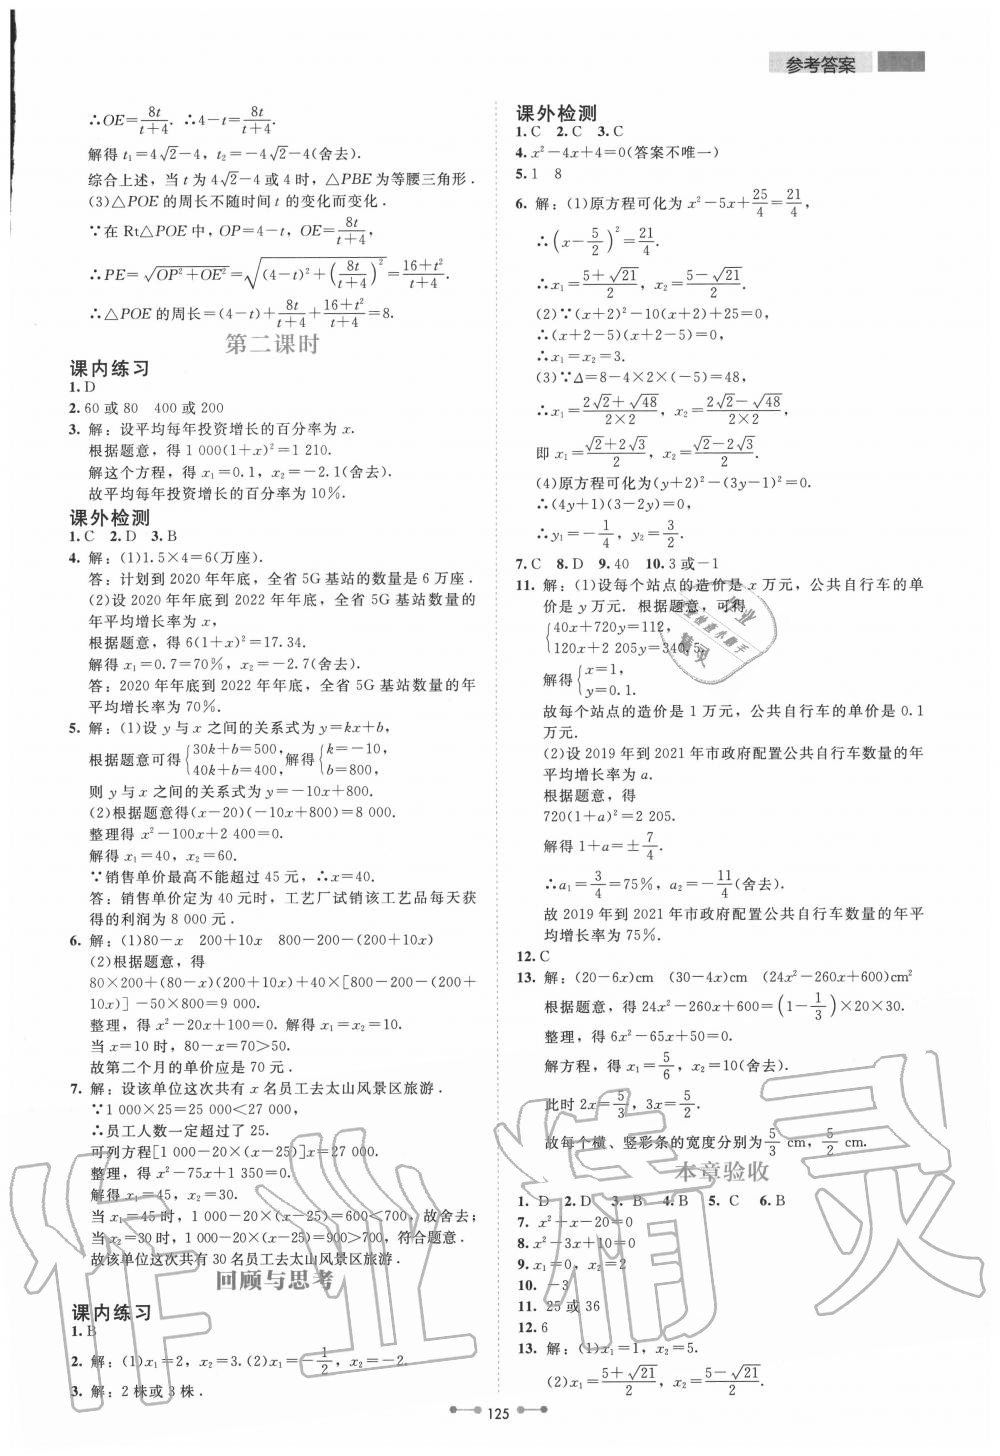 参考答案
∴OE=8t/(t+4). ∴4-t=8t/(t+4).
解得 t₁=4√2-4, t₂=-4√2-4(舍去).
综合上述,当 t 为 4√2-4 或 4 时,△PBE 为等腰三角形.
(3)△POE 的周长不随时间 t 的变化而变化.
∵在 Rt△POE 中, OP=4-t, OE=8t/(t+4),
∴PE=√(OP²+OE²)=√((4-t)²+(8t/(t+4))²)=(16+t²)/(t+4).
∴△POE 的周长=(4-t)+8t/(t+4)+(16+t²)/(t+4)=8.
第二课时
课内练习
1. D
2. 60 或 80 400 或 200
3. 解:设平均每年投资增长的百分率为 x.
根据题意,得 1 000(1+x)²=1 210.
解这个方程,得 x₁=0.1, x₂=-2.1(舍去).
故平均每年投资增长的百分率为 10%.
课外检测
1. C 2. D 3. B
4. 解:(1)1.5×4=6(万座).
答:计划到 2020 年年底,全省 5G 基站的数量是 6 万座.
(2)设 2020 年年底到 2022 年年底,全省 5G 基站数量的
年平均增长率为 x,
根据题意,得 6(1+x)²=17.34.
解得 x₁=0.7=70%, x₂=-2.7(舍去).
答:2020 年年底到 2022 年年底,全省 5G 基站数量的年
平均增长率为 70%.
5. 解:(1)设 y 与 x 之间的关系式为 y=kx+b,
根据题意可得{30k+b=500, 40k+b=400, 解得{k=-10, b=800,
则 y 与 x 之间的关系式为 y=-10x+800.
(2)根据题意得(x-20)(-10x+800)=8 000.
整理得 x²-100x+2 400=0.
解得 x₁=40, x₂=60.
∵销售单价最高不能超过 45 元,∴x=40.
答:销售单价定为 40 元时,工艺厂试销该工艺品每天获
得的利润为 8 000 元.
6. 解:(1)80-x 200+10x 800-200-(200+10x)
(2)根据题意,得
80×200+(80-x)(200+10x)+40×[800-200-(200+
10x)]-50×800=9 000.
整理,得 x²-20x+100=0. 解得 x₁=x₂=10.
当 x=10 时,80-x=70>50.
故第二个月的单价应是 70 元.
7. 解:设该单位这次共有 x 名员工去太山风景区旅游.
∵1 000×25=25 000<27 000,
∴员工人数一定超过了 25.
可列方程[1 000-20×(x-25)]x=27 000.
整理,得 x²-75x+1 350=0.
解得 x₁=45, x₂=30.
当 x₁=45 时,1 000-20×(x-25)=600<700,故舍去;
当 x₂=30 时,1 000-20×(x-25)=900>700,符合题意.
故该单位这次共有 30 名员工去太山风景区旅游.
回顾与思考
课内练习
1. B
2. 解:(1)x₁=2, x₂=3. (2)x₁=-1/2, x₂=-2.
3. 解:2 株或 3 株.
课外检测
1. C 2. C 3. C
4. x²-4x+4=0(答案不唯一)
5. 1 8
6. 解:(1)原方程可化为 x²-5x+25/4=21/4,
∴(x-5/2)²=21/4.
∴x₁=(5+√21)/2, x₂=(5-√21)/2.
(2)∵(x+2)²-10(x+2)+25=0,
∴(x+2-5)(x+2-5)=0.
∴x₁=x₂=3.
(3)∵Δ=8-4×2×(-5)=48,
∴x₁=(2√2+√48)/(2×2), x₂=(2√2-√48)/(2×2),
即 x₁=(√2+2√3)/2, x₂=(√2-2√3)/2.
(4)原方程可化为(y+2)²-(3y-1)²=0.
∴(4y+1)(3-2y)=0.
∴y₁=-1/4, y₂=3/2.
7. C 8. D 9. 40 10. 3 或-1
11. 解:(1)设每个站点的造价是 x 万元,公共自行车的单
价是 y 万元. 根据题意,可得
{40x+720y=112, 120x+2 205y=340.5,
解得{x=1, y=0.1.
故每个站点的造价是 1 万元,公共自行车的单价是 0.1
万元.
(2)设 2019 年到 2021 年市政府配置公共自行车数量的年
平均增长率为 a.
根据题意,得
720(1+a)²=2 205.
解得 1+a=±7/4.
∴a₁=3/4=75%, a₂=-11/4(舍去).
故 2019 年到 2021 年市政府配置公共自行车数量的年平
均增长率为 75%.
12. C
13. 解:(20-6x)cm (30-4x)cm (24x²-260x+600)cm²
根据题意,得 24x²-260x+600=(1-1/3)×20×30.
整理,得 6x²-65x+50=0.
解方程,得 x₁=5/6, x₂=10(舍去).
此时 2x=5/3, 3x=5/2.
故每个横、竖彩条的宽度分别为 5/3 cm, 5/2 cm.
本章验收
1. D 2. D 3. B 4. B 5. C 6. B
7. x²+x-20=0
8. x²-3x+10=0
9. x₁=0, x₂=2
10. -3
11. 25 或 36
12. 6
13. 解:(1)x₁=1, x₂=5.
(2)x₁=(5+√21)/2, x₂=(5-√21)/2.
125
作业精灵